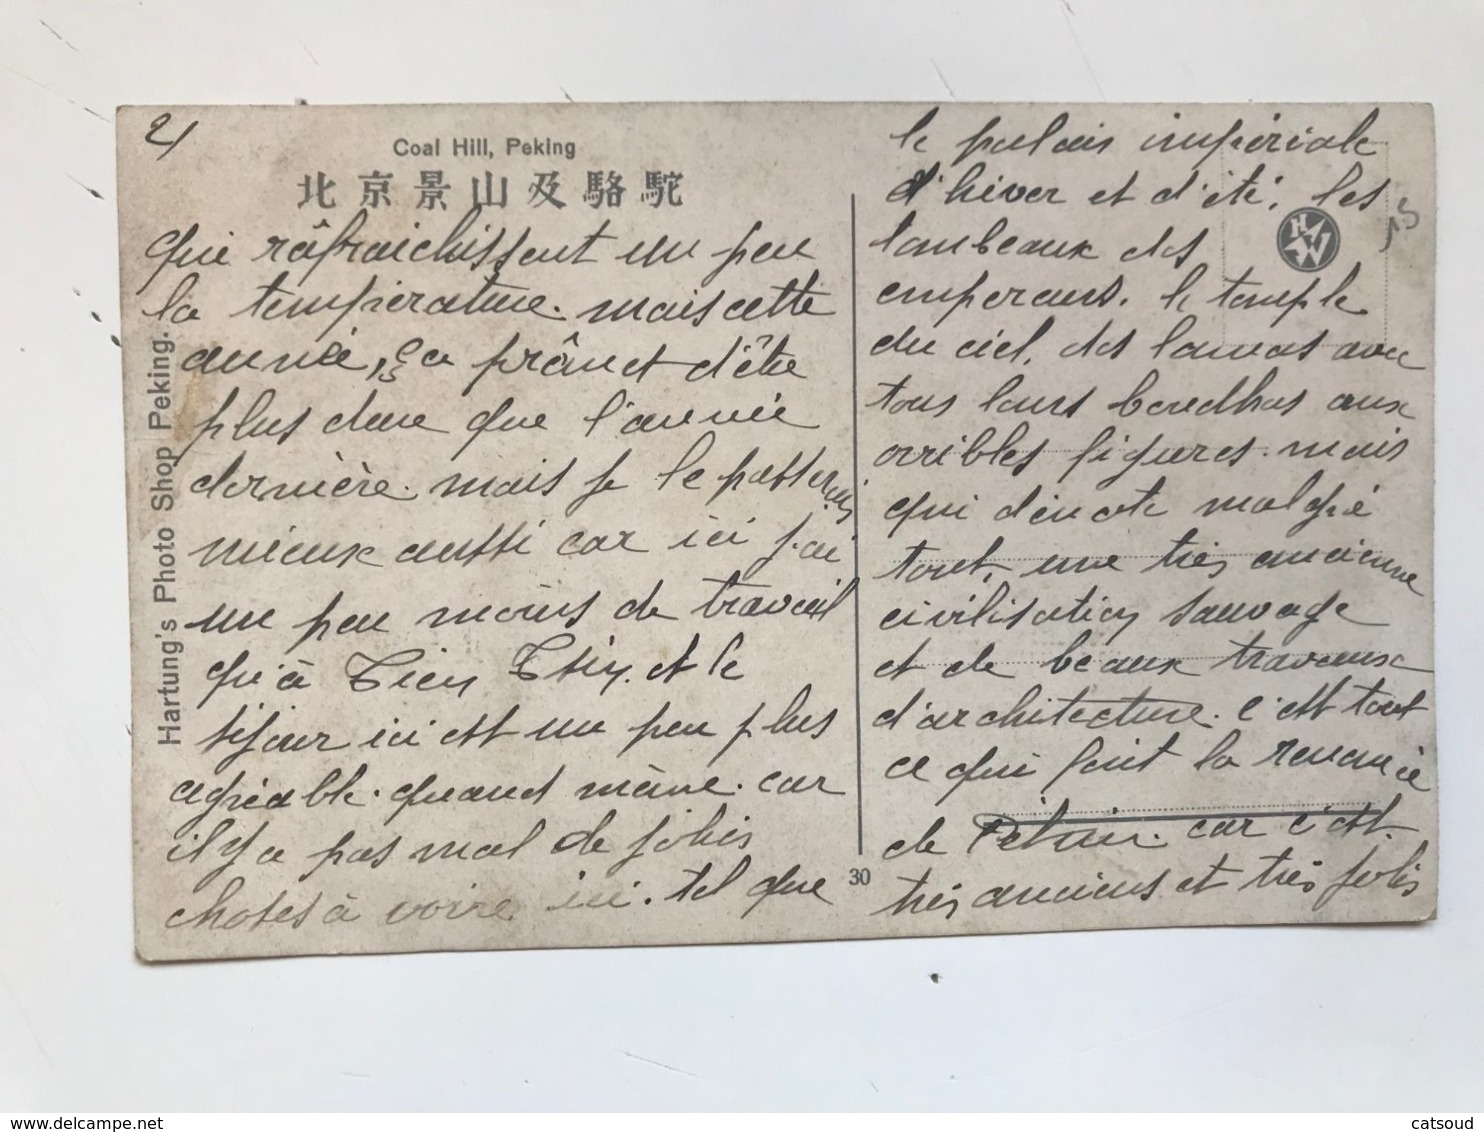 2)
Coal Hill, Peking
北京景山及駱駝
Hartung's Photo Shop Peking.
qui râfraichissent un peu
la température. mais cette
année, ça prâmet d'être
plus dure que l'année
dernière. mais je le passerais
mieux aussi car ici j'ai
un peu moins de travail
qu'à Tien Tsin. et le
séjour ici est un peu plus
agréable. quand même. car
il y a pas mal de jolies
choses à voire ici. tel que
30
le palais impériale
d'hiver et d'été. les
tombeaux des
empereurs. le temple
du ciel, des lamas avec
tous leurs boudhas aux
orribles figures. mais
qui dénote malgré
tout, une très ancienne
civilisation sauvage
et de beaux travaux
d'architecture. c'est tout
ce qui fait la renomée
de Pékin. car c'est
très anciens et très jolis
15
catsoud
delcampe.net